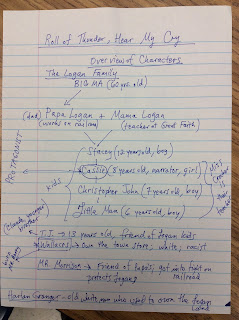 Roll of Thunder, Hear My Cry
Overview of Characters
The Logan Family
BIG MA (60 yrs. old)
(dad) Papa Logan + Mama Logan
(works on railroad) (teacher of Great Faith)
PROTAGONIST
KIDS
Stacey (12 years old, boy)
Cassie (8 years old, narrator, girl)
Christopher John (7 years old, boy)
Little Man (6 years old, boy)
T.J. → 13 years old, friend of Logan kids
Wallaces → own the town store, white, racist
MR. Morrison → Friend of Papa's, got into fight on railroad
protects Logans
Harlan Granger - old, white man who wants to own the Logan's land